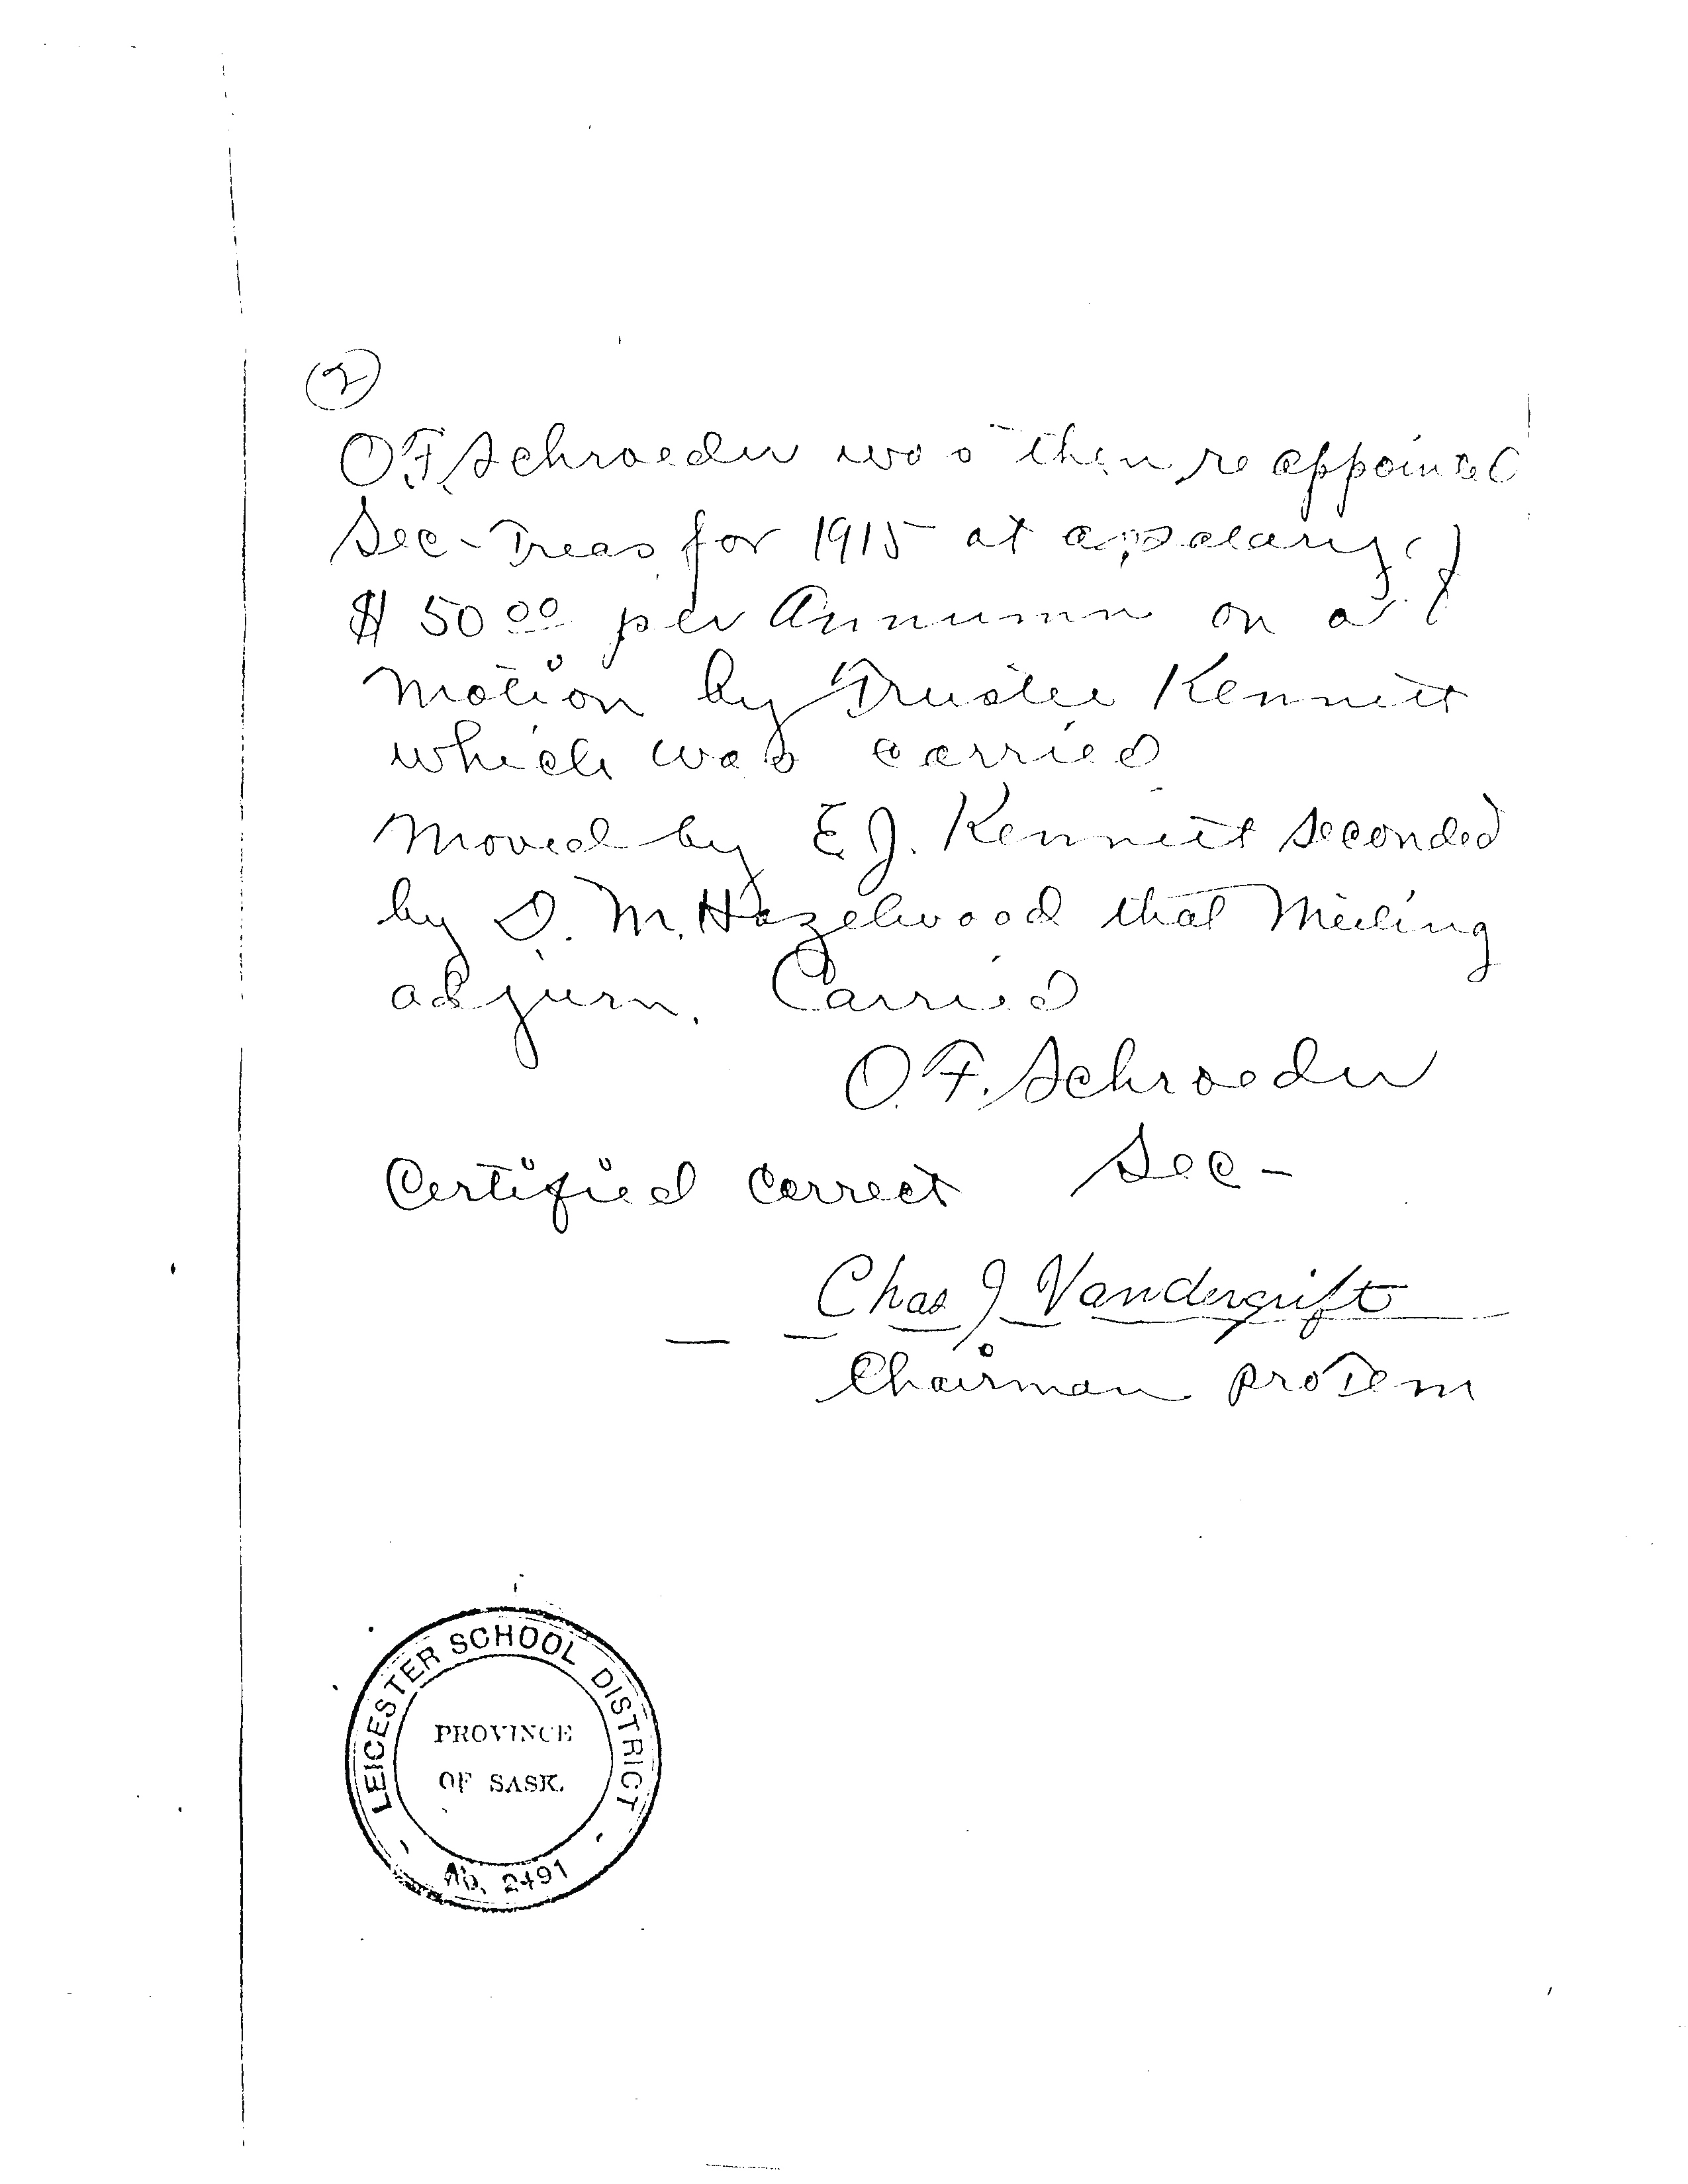 2
O.F. Schroeder was then reappointed
Sec-Treas for 1915 at a salary of
$50.00 per Annumn on a
Motion by Trustee Kennett
which was carried
Moved by E.J. Kennett seconded
by D. M. Hazelwood that Meeting
adjurn. Carried
O.F. Schroeder
Sec-
Certified Correct
Chas J Vandergrift
Chairman pro Tem
LEICESTER SCHOOL DISTRICT
PROVINCE
OF SASK.
No. 2491